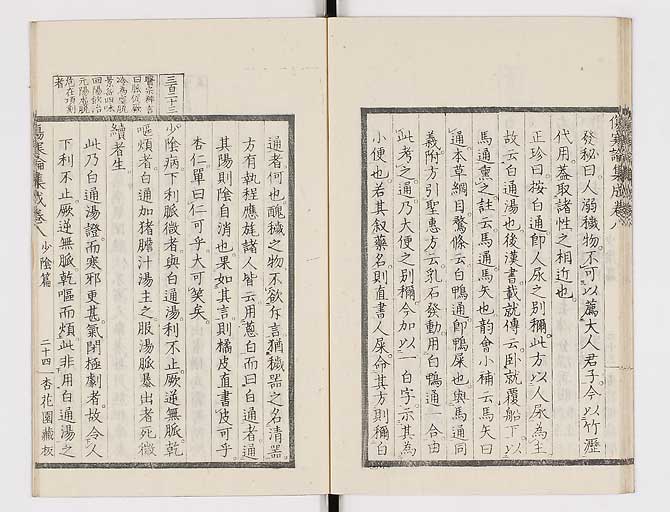 發秘曰人溺穢物不可以薦大人君子今以竹瀝
代用蓋取諸性之相近也
正珍曰按白通即人尿之別稱此方以人尿為主
故云白通湯也後漢書戴就傳云臥就覆船下以
馬通熏之註云馬通馬矢也韵會小補云馬矢曰
通本草綱目鶩條云白鴨通即鴨屎也與馬通同
義附方引聖惠方云乳石發動用白鴨通一合由
此考之通乃大便之別稱今加以一白字示其為
小便也若其叙藥名則直書人屎命其方則稱白
傷寒論集成卷八
通者何也醜穢之物不欲斥言猶穢器之名清器
方有執程應旄諸人皆云用蔥白而曰白通者通
其陽則陰自消也果如其言則橘皮直書皮可乎
杏仁單曰仁可乎大可笑矣
三百二十三
少陰病下利脈微者與白通湯利不止厥逆無脈乾
嘔煩者白通加猪膽汁湯主之服湯脈暴出者死微
續者生
此乃白通湯證而寒邪更甚氣閉極劇者故令人
下利不止厥逆無脈乾嘔而煩此非用白通湯之
傷寒論集成卷八 少陰篇 二十四 杏花園藏板